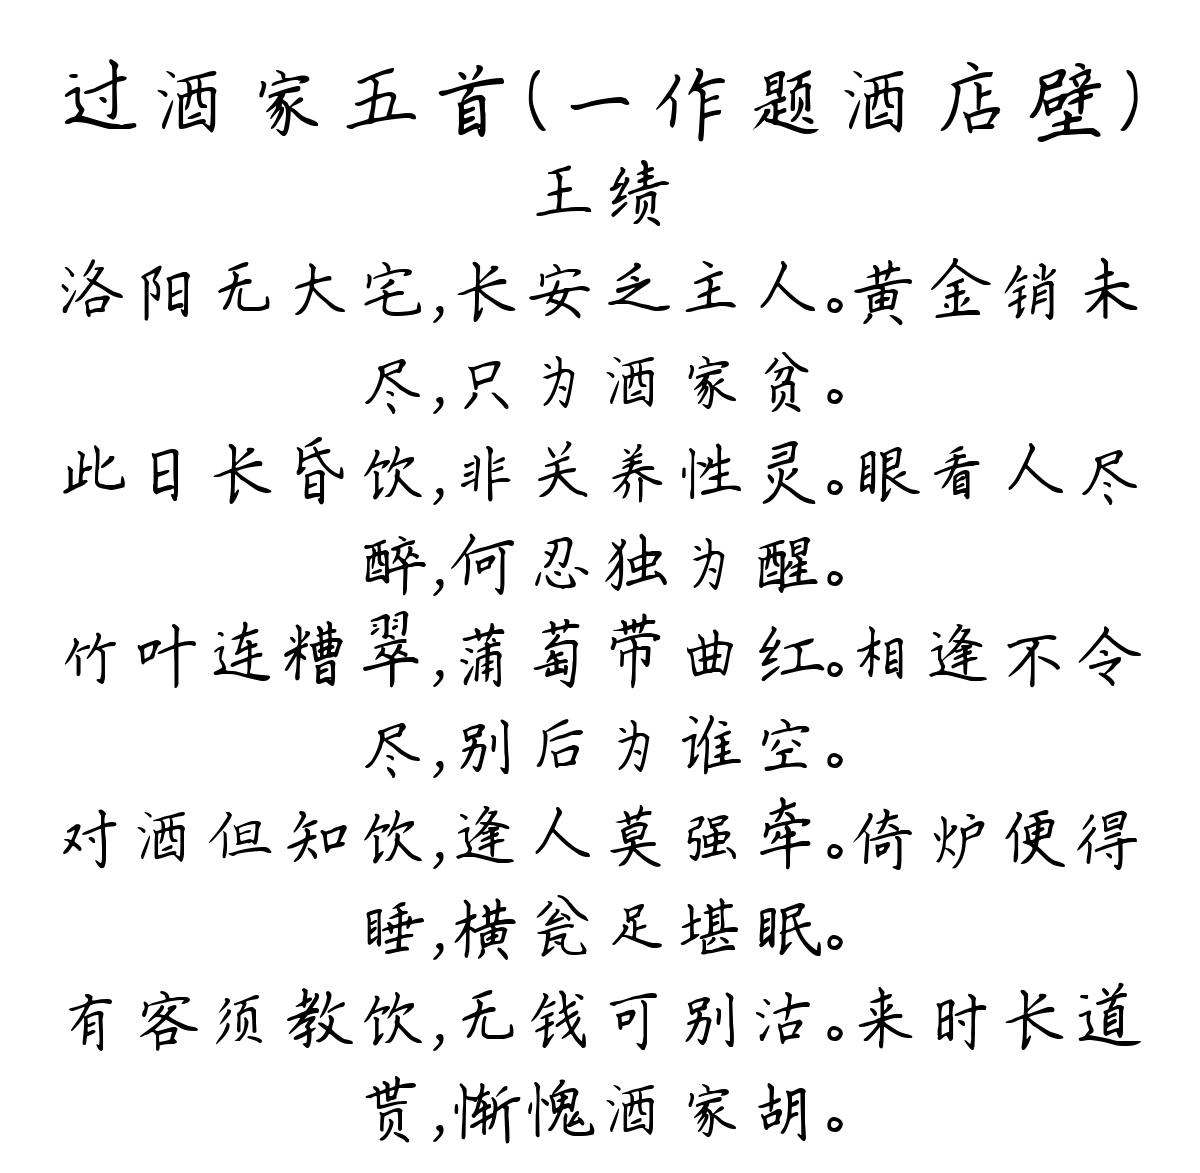 过酒家五首(一作题酒店壁)
王绩
洛阳无大宅,长安乏主人。黄金销未
尽,只为酒家贫。
此日长昏饮,非关养性灵。眼看人尽
醉,何忍独为醒。
竹叶连糟翠,蒲萄带曲红。相逢不令
尽,别后为谁空。
对酒但知饮,逢人莫强牵。倚炉便得
睡,横瓮足堪眠。
有客须教饮,无钱可别沽。来时长道
贳,惭愧酒家胡。